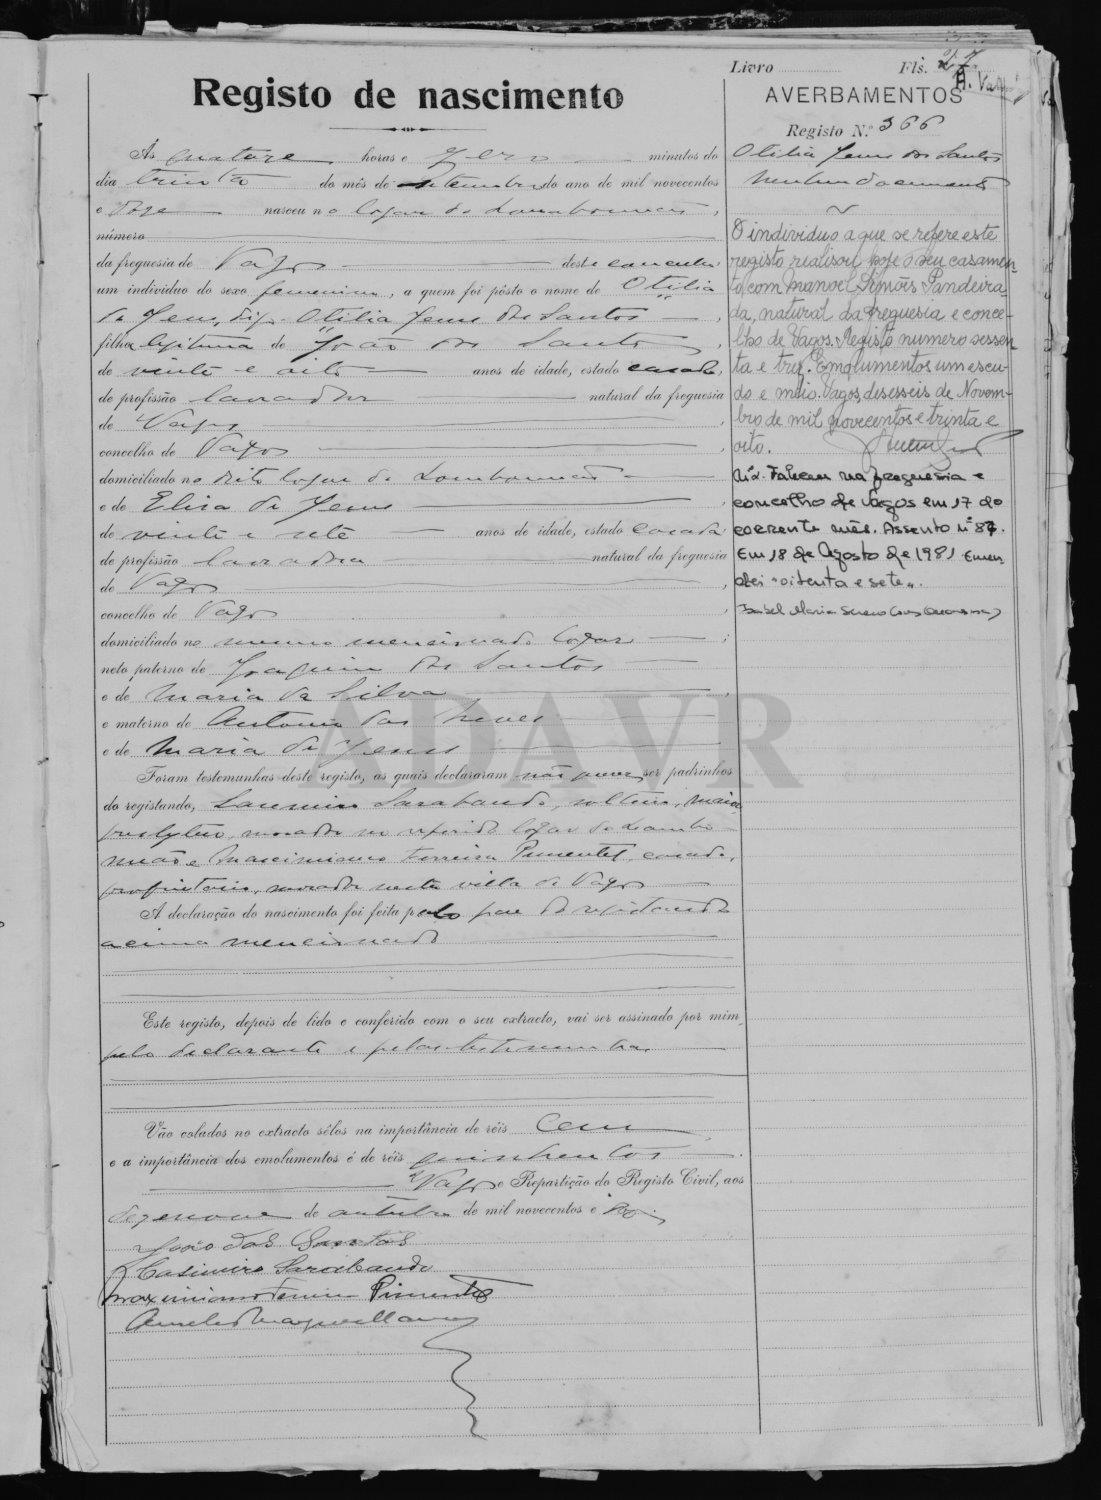 Livro Fls. 27
H. Vargs
Registo de nascimento
AVERBAMENTOS
Registo N.º 366
Otilia Jesus dos Santos
Nenhum documento
Ás quatorze horas e zero minutos do
dia trinta do mês de setembro do ano de mil novecentos
e doze nasceu no logar de Lombomeão,
número
da freguesia de Vagos deste concelho
um individuo do sexo femenino, a quem foi pôsto o nome de Otilia
de Jesus, digo Otilia Jesus dos Santos,
filha legitima de João dos Santos,
de vinte e oito anos de idade, estado casado,
de profissão lavrador natural da freguesia
de Vagos,
concelho de Vagos,
domiciliado no dito logar de Lombomeão
e de Elisa de Jesus,
de vinte e sete anos de idade, estado casada
de profissão lavradora natural da freguesia
de Vagos,
concelho de Vagos,
domiciliado no mesmo mencionado logar;
neto paterno de Joaquim dos Santos
e de Maria da Silva,
e materno de Antonio das Neves
e de Maria de Jesus
Foram testemunhas deste registo, as quais declararam não querer ser padrinhos
do registando, Casimiro Sarabando, solteiro, maior
presbytero, morador no referido logar de Lombo-
meão e Maximiano Ferreira Pimentel, casado,
proprietario, morador nesta villa de Vagos
A declaração do nascimento foi feita pelo pae do registando
acima mencionado
Este registo, depois de lido e conferido com o seu extracto, vai ser assinado por mim,
pelo declarante e pelas testemunhas
Vão colados no extracto sêlos na importância de réis Cem
e a importância dos emolumentos é de réis quinhentos.
Vagos e Repartição do Registo Civil, aos
dezenove de outubro de mil novecentos e doze.
João dos Santos
Casimiro Sarabando
Maximiano Ferreira Pimentel
O individuo a que se refere este
registo realisou hoje o seu casamen-
to com Manoel Simões Pandeira-
da, natural da freguesia e conce-
lho de Vagos. Registo numero sessen-
ta e trez. Emolumentos um escu-
do e meio. Vagos, deseseis de Novem-
bro de mil novecentos e trinta e
oito.
Nº2. Faleceu na freguesia e
concelho de Vagos em 17 do
corrente mês. Assento nº 87.
Em 18 de Agosto de 1981 Emen
dei "oitenta e sete".
Isabel Maria
ADAVR